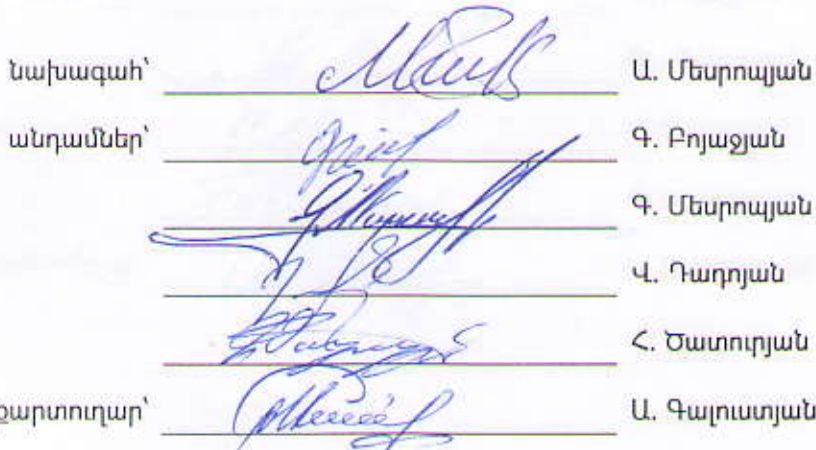 նախագահ՝ Ա. Մեսրոպյան
անդամներ՝ Գ. Բոյաջյան
Գ. Մեսրոպյան
Վ. Դադոյան
Հ. Ծատուրյան
քարտուղար՝ Ա. Գալուստյան